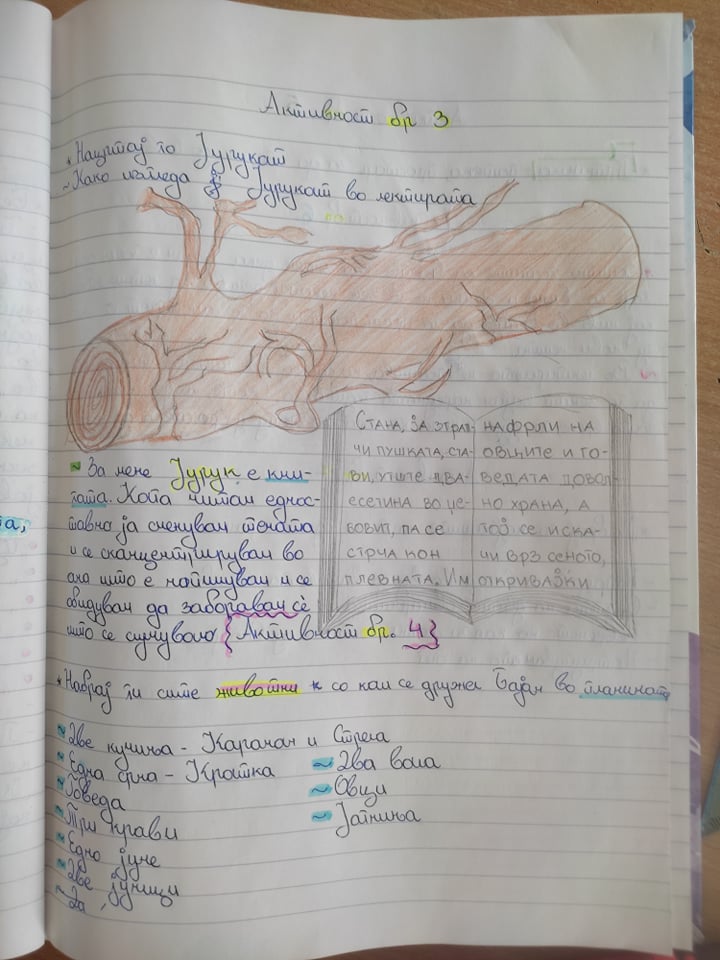 Активност бр 3
* Нацртај го Јурукот
~ Како изгледа Јурукот во лектирата
Стана, ја зграп-
чи пушката, ста-
ви, уште два-
есетина во џе-
бовит, па се
стрча кон
плевната. Им
нафрли на
овците и го-
ведата довол-
но храна, а
тој се иска-
чи врз сеното,
откривајќи
~ За мене Јурук е кни-
гата. Кога читам еднос-
тавно ја снемувам тегата
и се сконцентрирувам во
ано што е напишувам и се
обидувам да заборавам сѐ
што се случувало {Активност бр. 4}
* Наброј ги сите животни к со кои се дружел Бојан во планината
~ Две кучиња - Караман и Стрела
~ Една срна - Кротка
~ Говеда
~ Три крави
~ Едно јуне
~ Две јуници
~ За
~ Два вола
~ Овци
~ Јагниња
а,